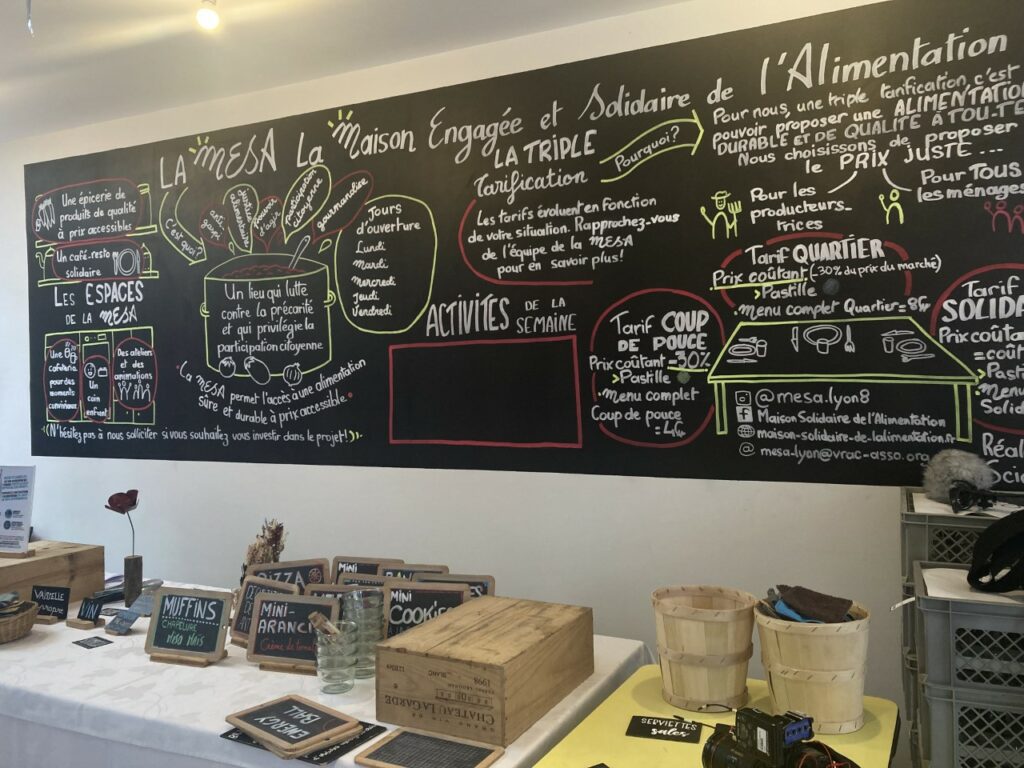 LA MESA La Maison Engagée et Solidaire de l'Alimentation
Une épicerie de
produits de qualité
à prix accessibles
Un café-resto
solidaire
LES ESPACES
DE LA MESA
Une
cafeteria
pour des
moments
conviviaux
Un
coin
enfant
Des ateliers
et des
animations
C'est quoi?
alimentaire
Pouvoir
d'agir
Participation
citoyenne
gourmandise
Un lieu qui lutte
contre la précarité
et qui privilégie la
participation citoyenne
La MESA permet l'accès à une alimentation
sûre et durable à prix accessible.
(N'hésitez pas à nous solliciter si vous souhaitez vous investir dans le projet!)
Jours
d'ouverture
Lundi
Mardi
Mercredi
Jeudi
Vendredi
LA TRIPLE
Tarification
Pourquoi?
Les tarifs évoluent en fonction
de votre situation. Rapprochez-vous
de l'équipe de la MESA
pour en savoir plus!
ACTIVITES DE LA
SEMAINE
Pour nous, une triple tarification, c'est
pouvoir proposer une ALIMENTATION
DURABLE ET DE QUALITÉ À TOU·TE
Nous choisissons de proposer
le PRIX JUSTE ...
Pour les
producteurs·
trices
Pour TOUS
les ménages
Tarif QUARTIER
Prix coûtant (-30% du prix du marché)
> Pastille
• Menu complet Quartier = 8€
Tarif COUP
DE POUCE
Prix coûtant -30%
> Pastille
• Menu complet
Coup de pouce
= 4€
Tarif
SOLIDA
Prix coûtan
= coût
> Past
• Menu
Solid
@mesa.lyon8
Maison Solidaire de l'Alimentation
maison-solidaire-de-lalimentation.fr
@ mesa-lyon@vrac-asso.org
Réal
VAISSELLE
VIN
MUFFINS
CHAPELURE
PIZZA
MINI-
ARANCI
Crème de tomat
MINI
MINI
COOKIES
1998
CHATEAU LAGARDE
ENERGY
BALL
SERVIETTES
sales